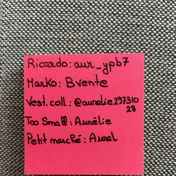 Ricardo: aur_ypb7
Marko: Bvente
Vest. coll.: @aurelie297310
28
Too Small: Aurélie
Petit marché: Aurel